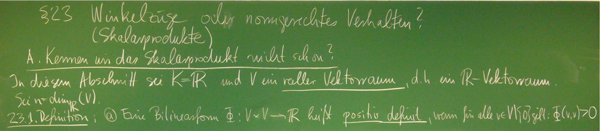 §23 Winkelzüge oder normgerechtes Verhalten?
(Skalarprodukte)
A. Kennen wir das Skalarprodukt nicht schon?
In diesem Abschnitt sei K=ℝ und V ein reeller Vektorraum, d.h. ein ℝ-Vektorraum.
Sei n=dim_ℝ(V).
23.1. Definition: ⓐ Eine Bilinearform Φ: V×V→ℝ heißt positiv definit, wenn für alle v∈V\{0} gilt: Φ(v,v)>0